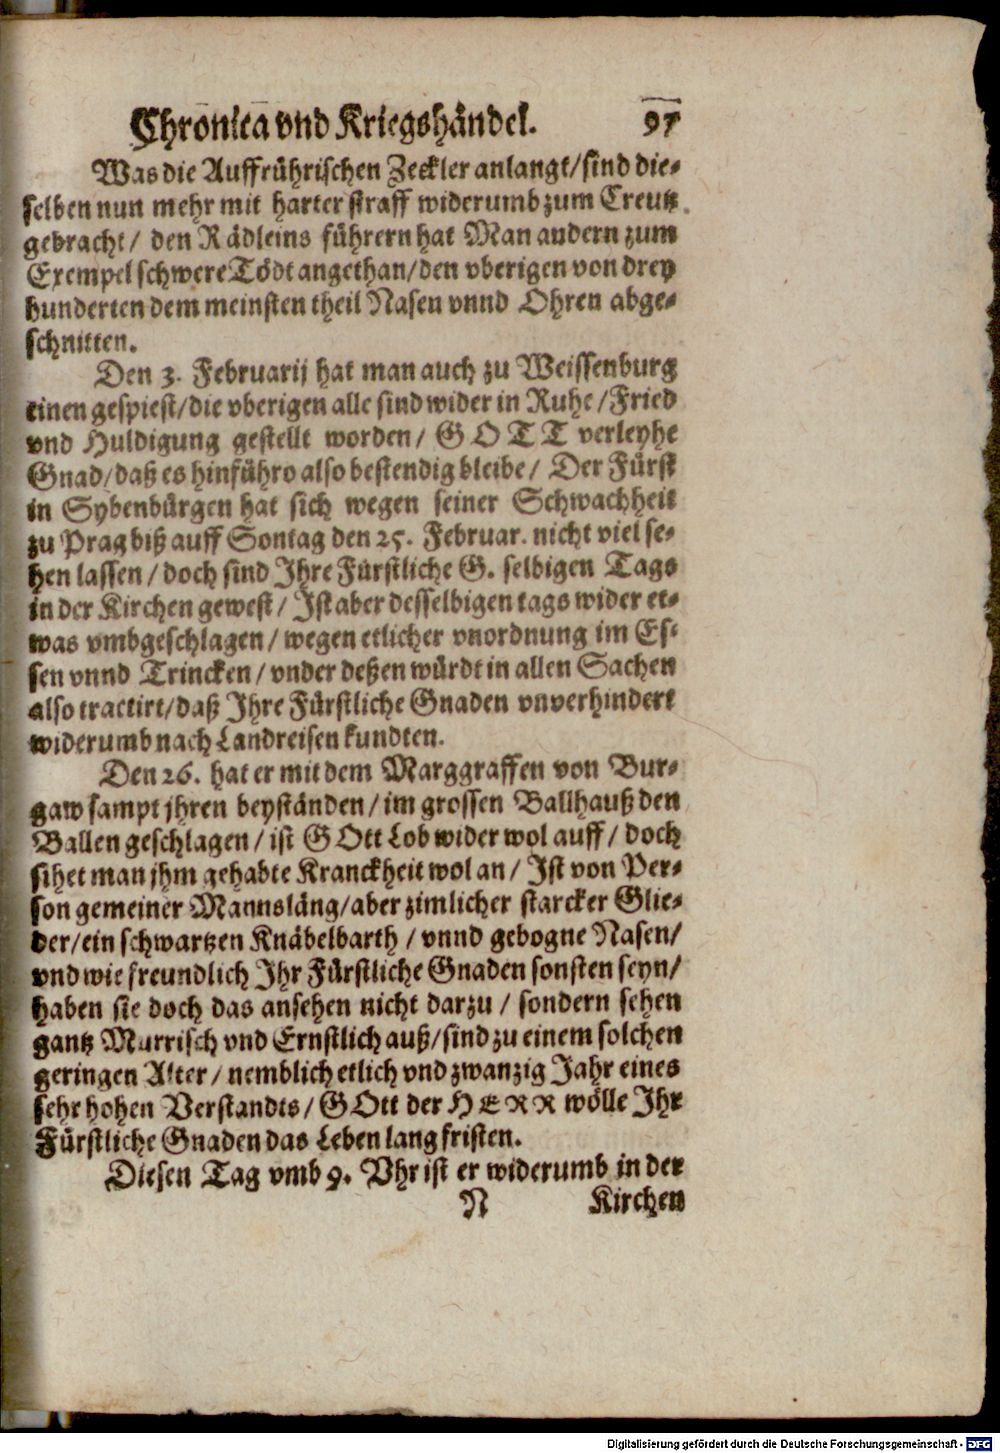 Chronica vnd Kriegshändel. 97
Was die Auffrührischen Zeckler anlangt/sind die-
selben nun mehr mit harter straff widerumb zum Creutz
gebracht/ den Rädleins führern hat Man andern zum
Exempel schwere Tödt angethan/den vberigen von drey
hunderten dem meinsten theil Nasen vnnd Ohren abge-
schnitten.
Den 3. Februarij hat man auch zu Weissenburg
einen gespiest/die vberigen alle sind wider in Ruhe/Fried
vnd Huldigung gestellt worden/ GOTT verleyhe
Gnad/daß es hinführo also bestendig bleibe/ Der Fürst
in Sybenbürgen hat sich wegen seiner Schwachheit
zu Prag biß auff Sontag den 25. Februar. nicht viel se-
hen lassen/doch sind Ihre Fürstliche G. selbigen Tags
in der Kirchen gewest/ Ist aber desselbigen tags wider et-
was vmbgeschlagen/wegen etlicher vnordnung im Es-
sen vnnd Trincken/vnder deßen würdt in allen Sachen
also tractirt/daß Ihre Fürstliche Gnaden vnverhindert
widerumb nach Landreisen kundten.
Den 26. hat er mit dem Marggraffen von Bur-
gaw sampt jhren beyständen/im grossen Ballhauß den
Ballen geschlagen/ist GOtt Lob wider wol auff/ doch
sihet man jhm gehabte Kranckheit wol an/ Ist von Per-
son gemeiner Mannsläng/aber zimlicher starcker Glie-
der/ein schwartzen Knäbelbarth/vnnd gebogne Nasen/
vnd wie freundlich Ihr Fürstliche Gnaden sonsten seyn/
haben sie doch das ansehen nicht darzu/ sondern sehen
gantz Murrisch vnd Ernstlich auß/sind zu einem solchen
geringen Alter/ nemblich etlich vnd zwanzig Jahr eines
sehr hohen Verstandts/GOtt der HERR wölle Ihr
Fürstliche Gnaden das Leben lang fristen.
Diesen Tag vmb 9. Vhr ist er widerumb in der
N Kirchen
Digitalisierung gefördert durch die Deutsche Forschungsgemeinschaft - DFG